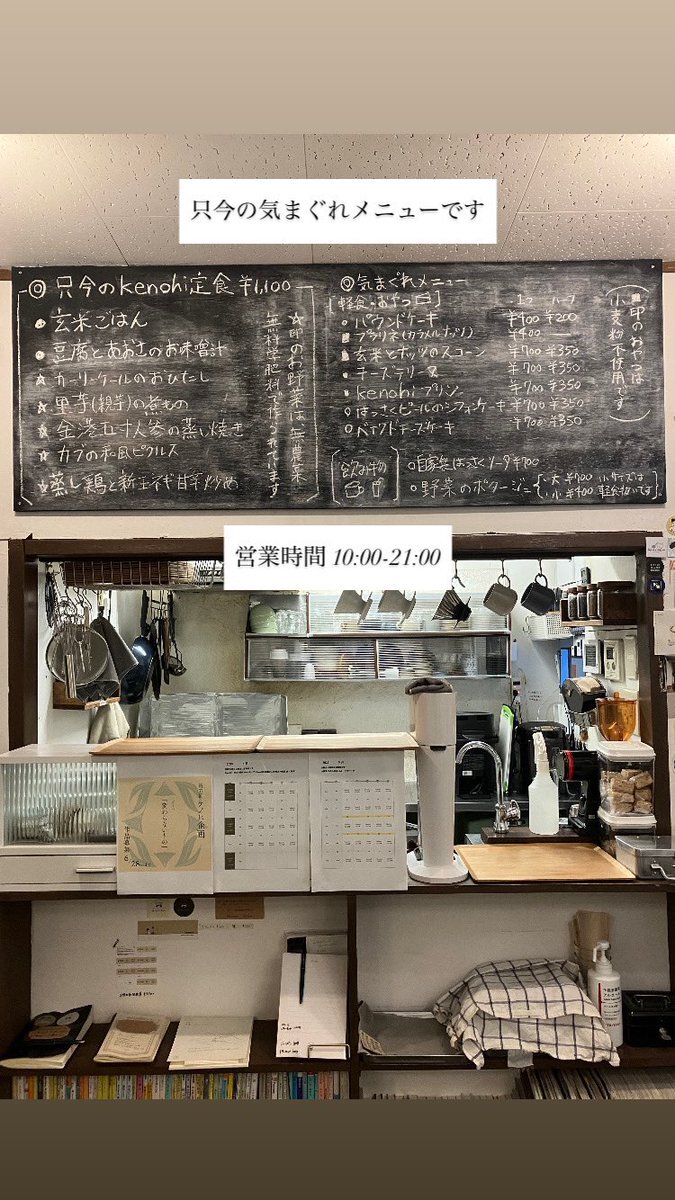 只今の気まぐれメニューです
◎只今のkenohi定食 ¥1,100
・玄米ごはん
・豆腐とあおさのお味噌汁
☆カーリーケールのおひたし
☆里芋(親芋)の煮もの
☆金港五寸人参の蒸し焼き
☆カブの和風ピクルス
☆蒸し鶏と新玉ネギ甘辛炒め
☆印のお野菜は無農薬
無科学肥料で作られています
◎気まぐれメニュー
[軽食・おやつ]
ハーフ
・パウンドケーキ ¥400 ¥200
■プラリネ(カラメルナッツ) ¥400
■玄米とナッツのスコーン ¥700 ¥350
・チーズテリーヌ ¥700 ¥350
・kenohiプリン ¥700 ¥350
・はっさくピールのシフォンケーキ ¥700 ¥350
・ベイクドチーズケーキ ¥700 ¥350
■印のおやつは
小麦粉不使用です
[飲み物]
○自家製はっさくソーダ ¥700
○野菜のポタージュ
大 ¥700 小サイズは
小 ¥400 軽食扱いです
営業時間 10:00-21:00